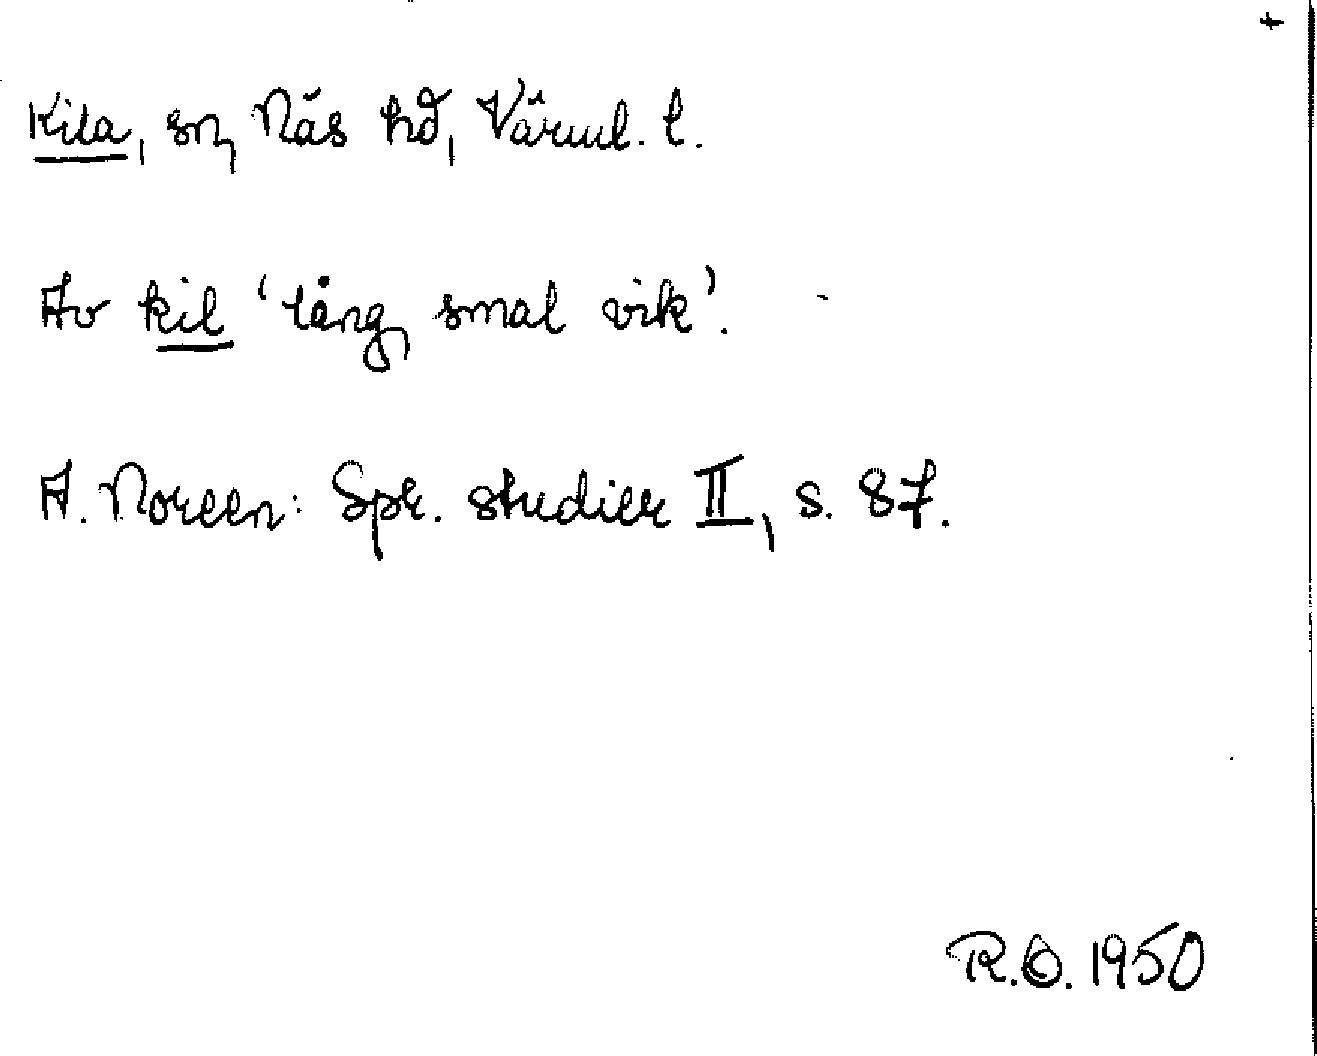 Kila, sn, Näs hd, Värml. l.
Av kil 'lång, smal vik'.
A. Noreen: Spr. studier II, s. 87.
R.O. 1950